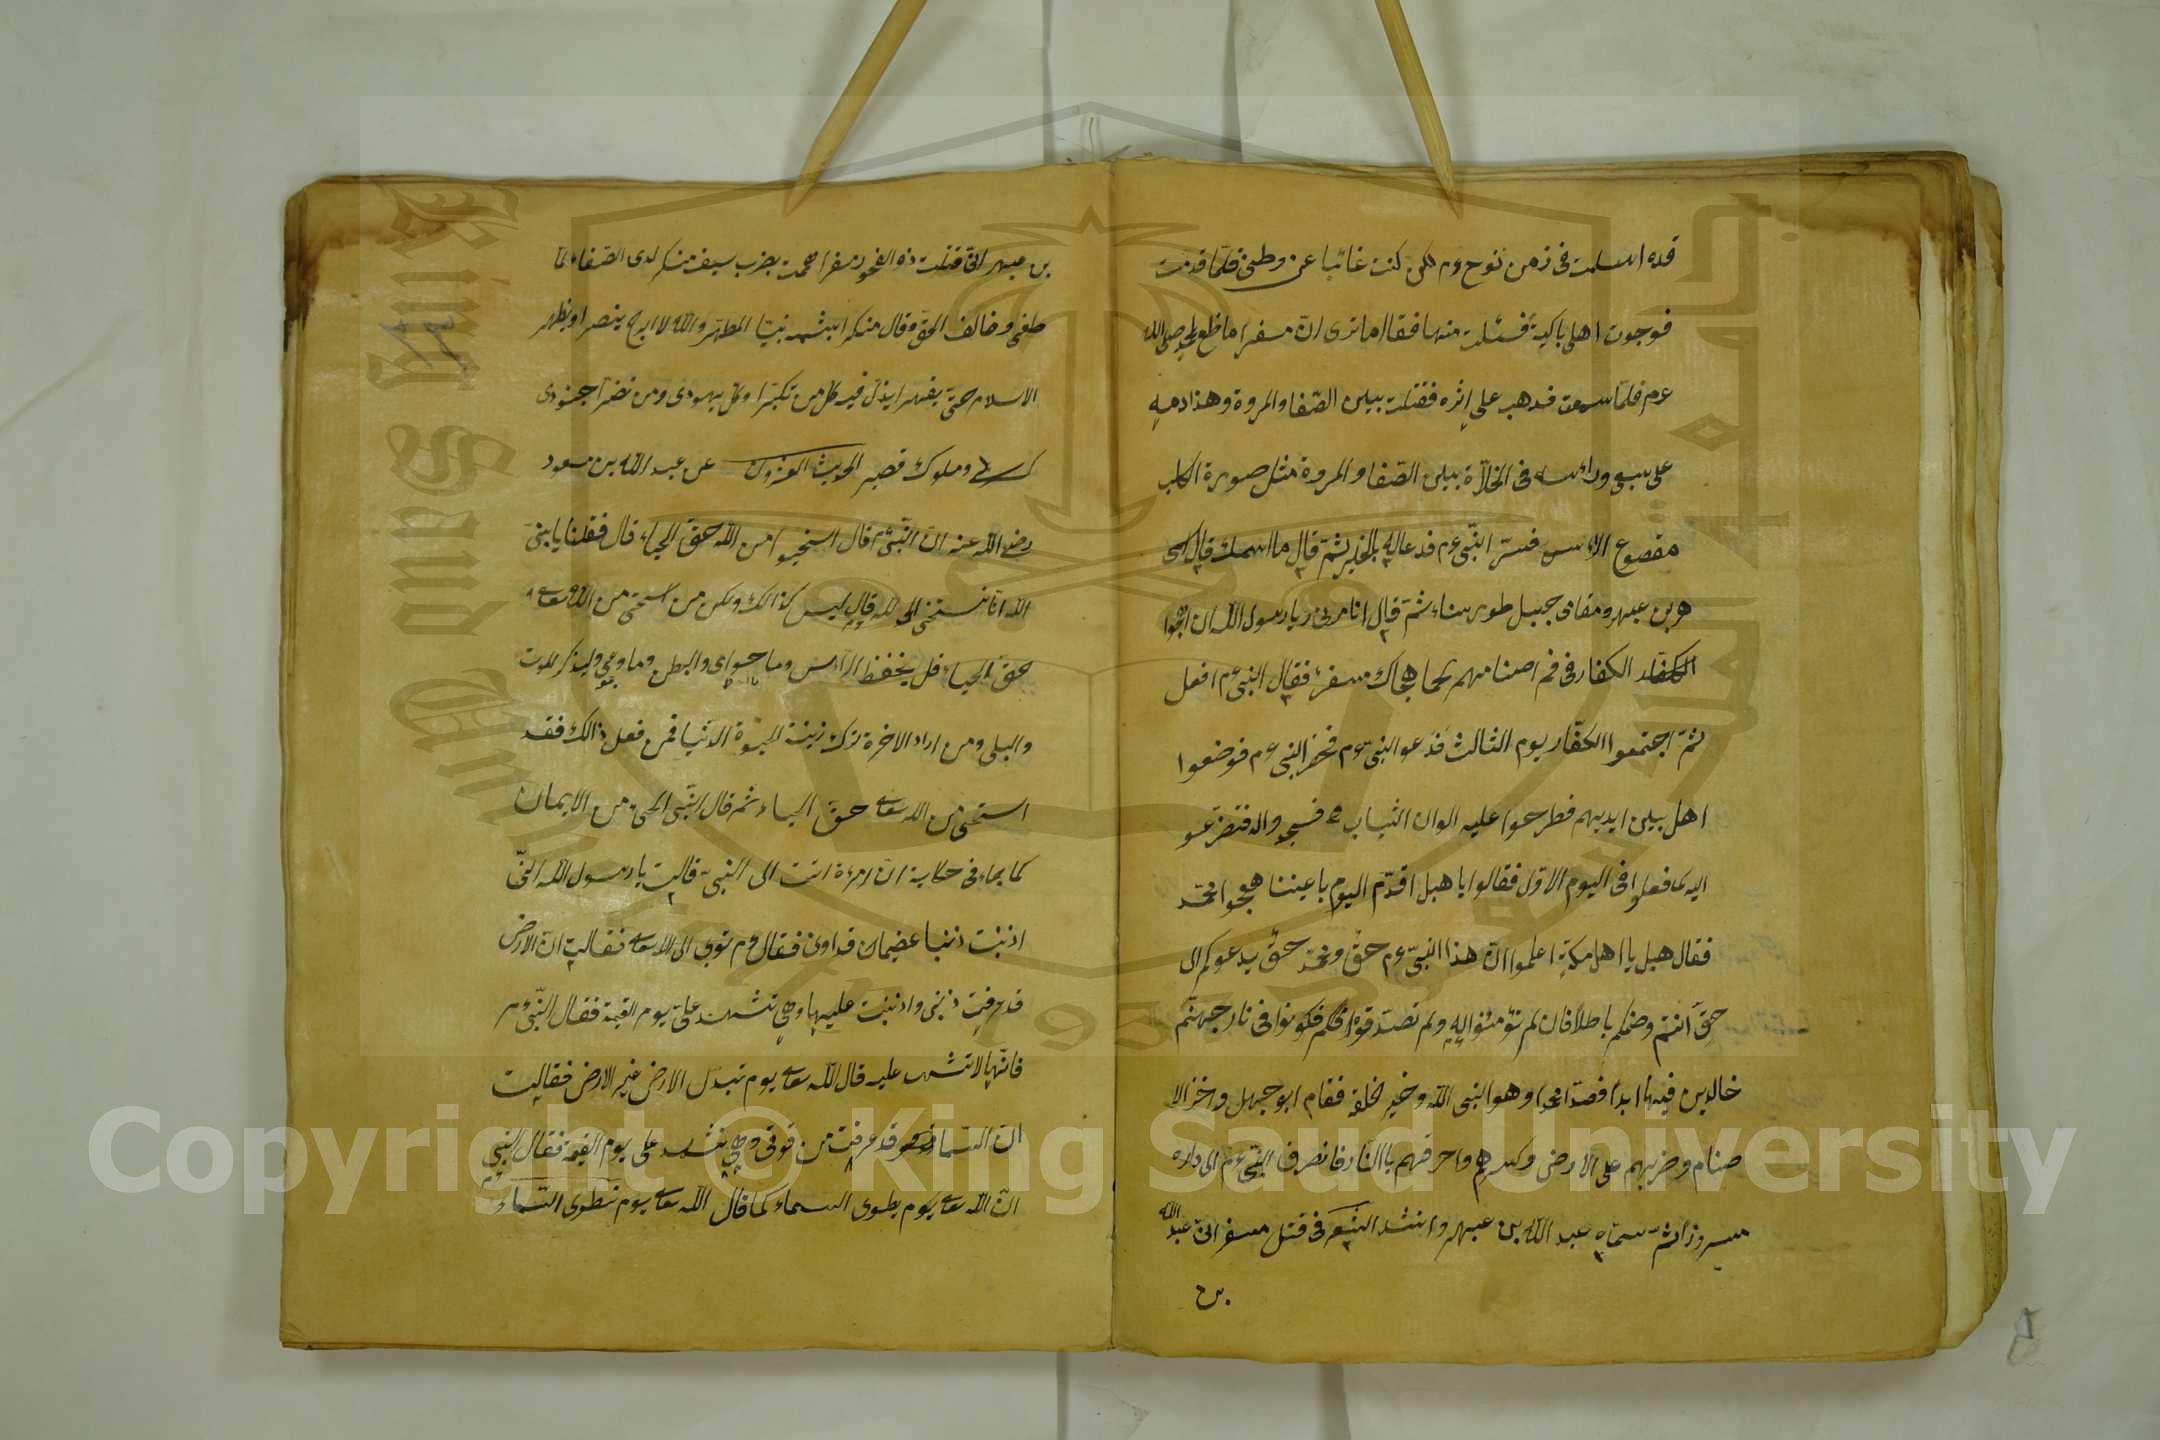 قد اسلمت فى زمن نوح ءم لكن كنت غائبا عن وطنى فلما قدمت
فوجدت اهلى باكية فسئلت منها فقال اما ترى ان مسفرا ما صلى الله
ءم فلما سمعت فذهب على اثره فقتلت بين الصفا والمروة وهذا دمه
على سيفى وراسه فى المخلاة بين الصفا والمروة مثل صورة الكلب
مقصوع الراس فسر النبى ءم فدعا له بالخير ثم قال ما اسمك قال اسمى
بن عبهر ومقامى جبل طور سناء ثم قال يا رسول الله ان اهجوا
الكفار الكفار فى فم اصنامهم كما هجاك مسفر فقال النبى ءم افعل
ثم اجتمعوا الكفار يوم الثالث فدعو النبى ءم فحضر النبى ءم فوضعوا
اهل بين ايديهم فطرحوا عليه الوان الثياب فسجدوا له فتضرعو
اليه كما فعلوا فى اليوم الاول فقالوا يا هبل اقدم اليوم باعيننا هجوا محمد
فقال هبل يا اهل مكة اعلموا ان هذا النبى ءم حق ومحمد حق يدعوكم الى
حق انتم وصنمكم باطل فان لم تؤمنوا به ولم تصدقوه فكونوا فى نار جهنم
خالدين فيها ابدا فصدقوا محمدا وهو النبى الله وخير خلقه فقام ابو جهل واخذ الا
صنام وضربهم على الارض وكسرهم واحرقهم باالنار فانصرف النبى ءم الى داره
مسرورا ثم سماه عبد الله بن عبهر وانشد الشعر فى قتل مسفر انى عبد الله
بن
بن عبهر انى قتلت ذو الفجور مسفرا بضرب سيف منكر لدى الصفاء لما
طغى وخالف الحق وقال منكرا بشتمه نبيا المطهر والله لا ابرح ينصر او يظهر
الاسلام حتى يقهر ايذل فيه كل من تكبرا وكل يهودى ومن تنصرا جنودى
كسرى وملوك قيصر الحديث العشرون عن عبد الله بن مسعود
رضى الله عنه ان النبى ءم قال استحيوا من الله حق الحياء قال فقلنا يا نبى
الله انا نستحى الحمد لله قال ليس كذالك ولكن من استحى من الله تعالى
حق الحياء فليحفظ الرأس وما حوى والبطن وما وعى وليذكر الموت
والبلى ومن اراد الاخرة ترك زينة الحيوة الدنيا فمن فعل ذالك فقد
استحى من الله تعالى حق الحياء ثم قال النبى الحياء من الايمان
كما جاء فى حكاية ان امرءة اتت الى النبى قالت يا رسول الله انى
اذنبت ذنبا عضيما فداونى فقال ءم توبى الى الله تعالى فقالت ان الارض
قد عرفت ذنبى واذنبت عليها وهى تشهد على يوم القيمة فقال النبى ءم
فانها لا تشهد عليه قال الله تعالى يوم تبدل الارض غير الارض فقالت
ان السماء قد عرفت من فوقى وهى تشهد على يوم القيمة فقال النبى
ان الله تعالى يوم يطوى السماء كما قال الله تعالى يوم نطوى السماء
Copyright © King Saud University
King Saud University
1957